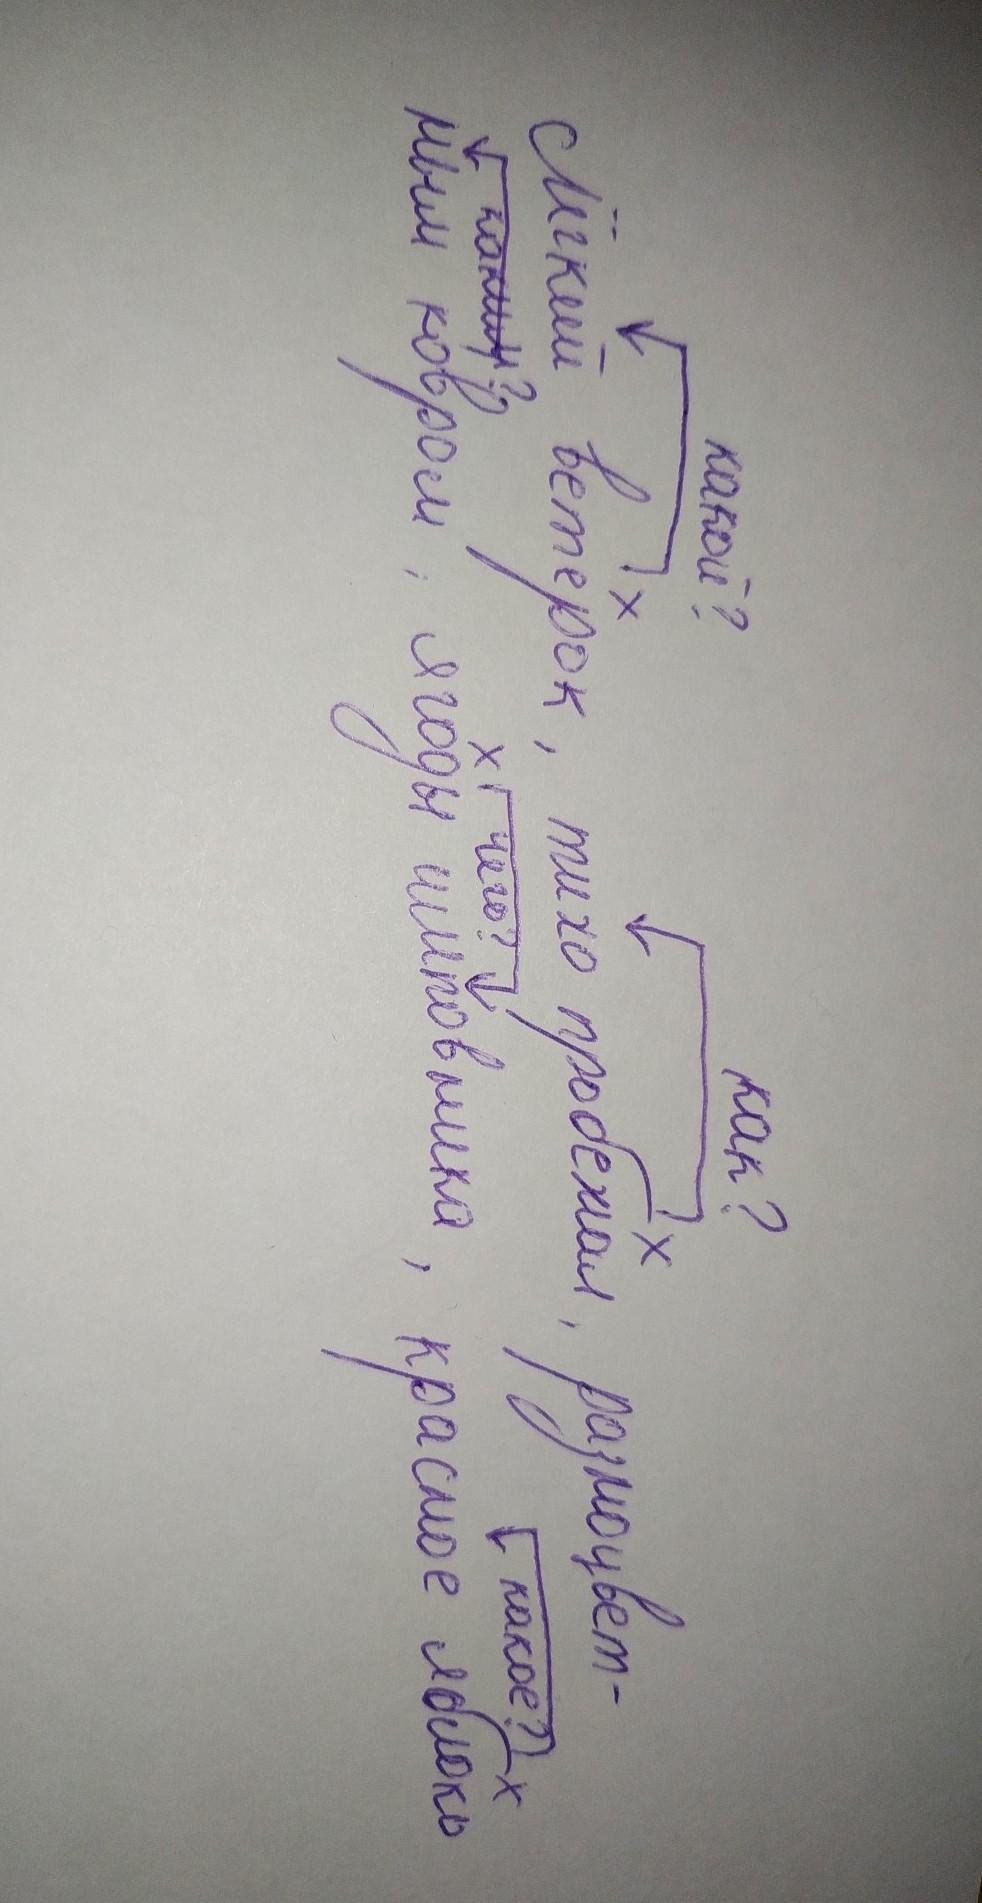 какой? как?
Мягкий ветерок, тихо пробежал, разноцвет-
каким? чего? какое?
ным ковром, ягоды шиповника, красное яблоко